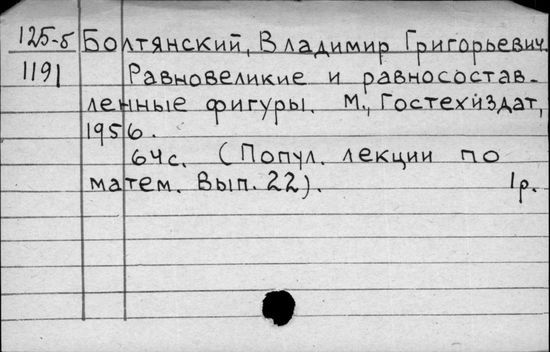 125-б Болтянский, Владимир Григорьевич.
1191 Равновеликие и равносостав-
ленные фигуры. М., Гостехиздат,
1956.
64с. (Попул. лекции по
матем. Вып. 22). 1р.